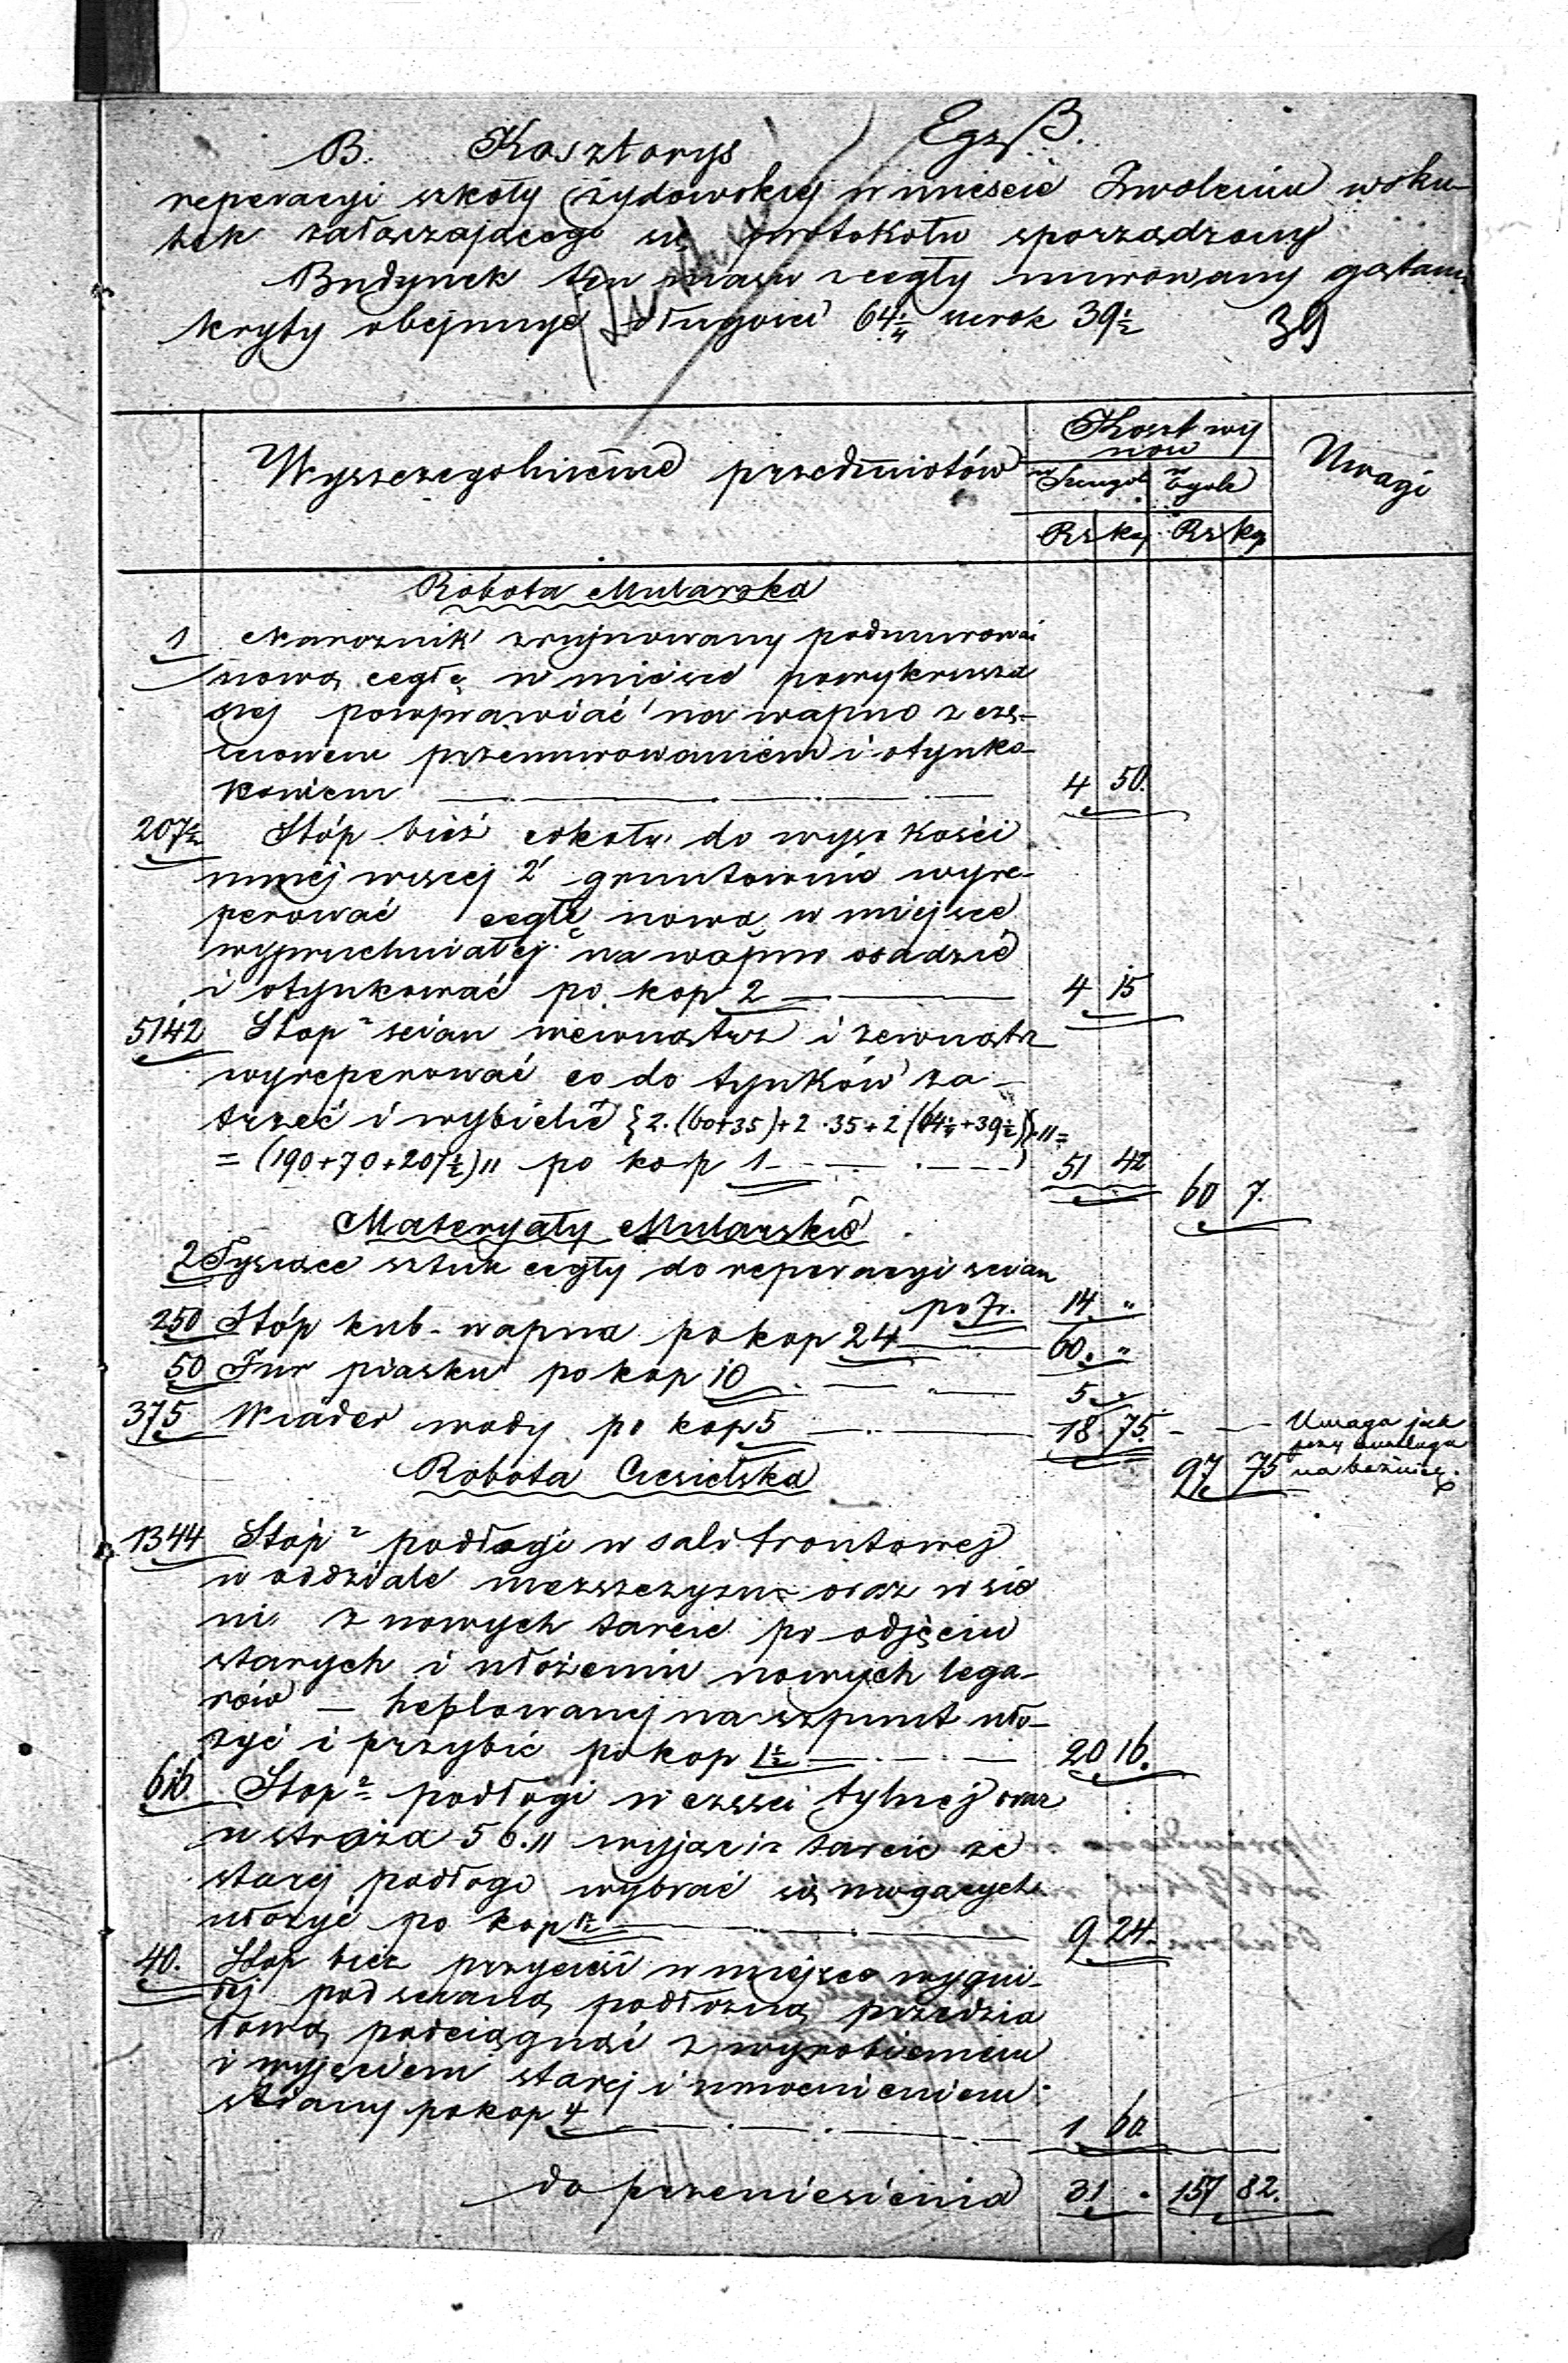 B. Kosztorys Egz B.
reperacyi szkoły żydowskiej w mieście Zwoleniu wsku-
tek załączającego się protokołu sporządzony
Budynek ten masiw z cegły murowany gontami
kryty obejmuje długości 64 1/4 szerok 39 1/2 39
Wyszczegolnienie przedmiotów
Koszt wy
nosi
w Szczegol
w Ogole
Uwagi
Rs kop Rs kop
Robota Mularska
1 Narożnik zrujnowany podmurować
nową cegłę w miejsce powykrusza
nej powprawiać na wapno z czę-
ściowem przemurowaniem i otynko
kowaniem 4 50.
207 1/2 Stóp bież cokołu do wysokości
mniej więcej 2' gruntownie wyre-
perować cegłę nową w miejsce
wypruchniałej na wapno osadzić
i otynkować po kop 2 4 15
5142 Stop² ścian wewnątrz i zewnątr
wyreperować co do tynków za-
trzeć i wybielić {2.(60+35)+2.35+2(64 1/4+39 1/2)}.11=
= (190+70+207 1/2)11 po kop 1 51 42
60 7.
Materyały Mularskie
2 Tysiące sztuk cegły do reperacyi ścian
po 7r. 14 "
250 Stóp kub. wapna po kop 24 60. "
50 Fur piasku po kop 10 5 "
375 Wiader wody po kop 5 18 75.
Uwaga jak
przy
na bożnicę.
97 75
Robota Ciesielska
1344 Stóp² podłogi w sali frontowej
w oddziale mężczyzn oraz w sie
ni z nowych tarcic po odjęciu
starych i ułożeniu nowych lega-
rów — heplowanej na szpunt uło-
żyć i przybić po kop 1 1/2 20 16.
616 Stop² podłogi w części tylnej oraz
u stróża 56.11 wyjąć i z tarcic ze
starej podłogi wybrać się mogących
ułożyć po kop 1 1/2 9 24.
40. Stop bież przycieśi w miejsce wygni-
łej pod ścianą podłużną przedzia
łową podciągnąć z wyrobieniem
i wyjęciem starej i umocnieniem
ściany po kop 4 1 60
do przeniesienia 31 . 157 82.